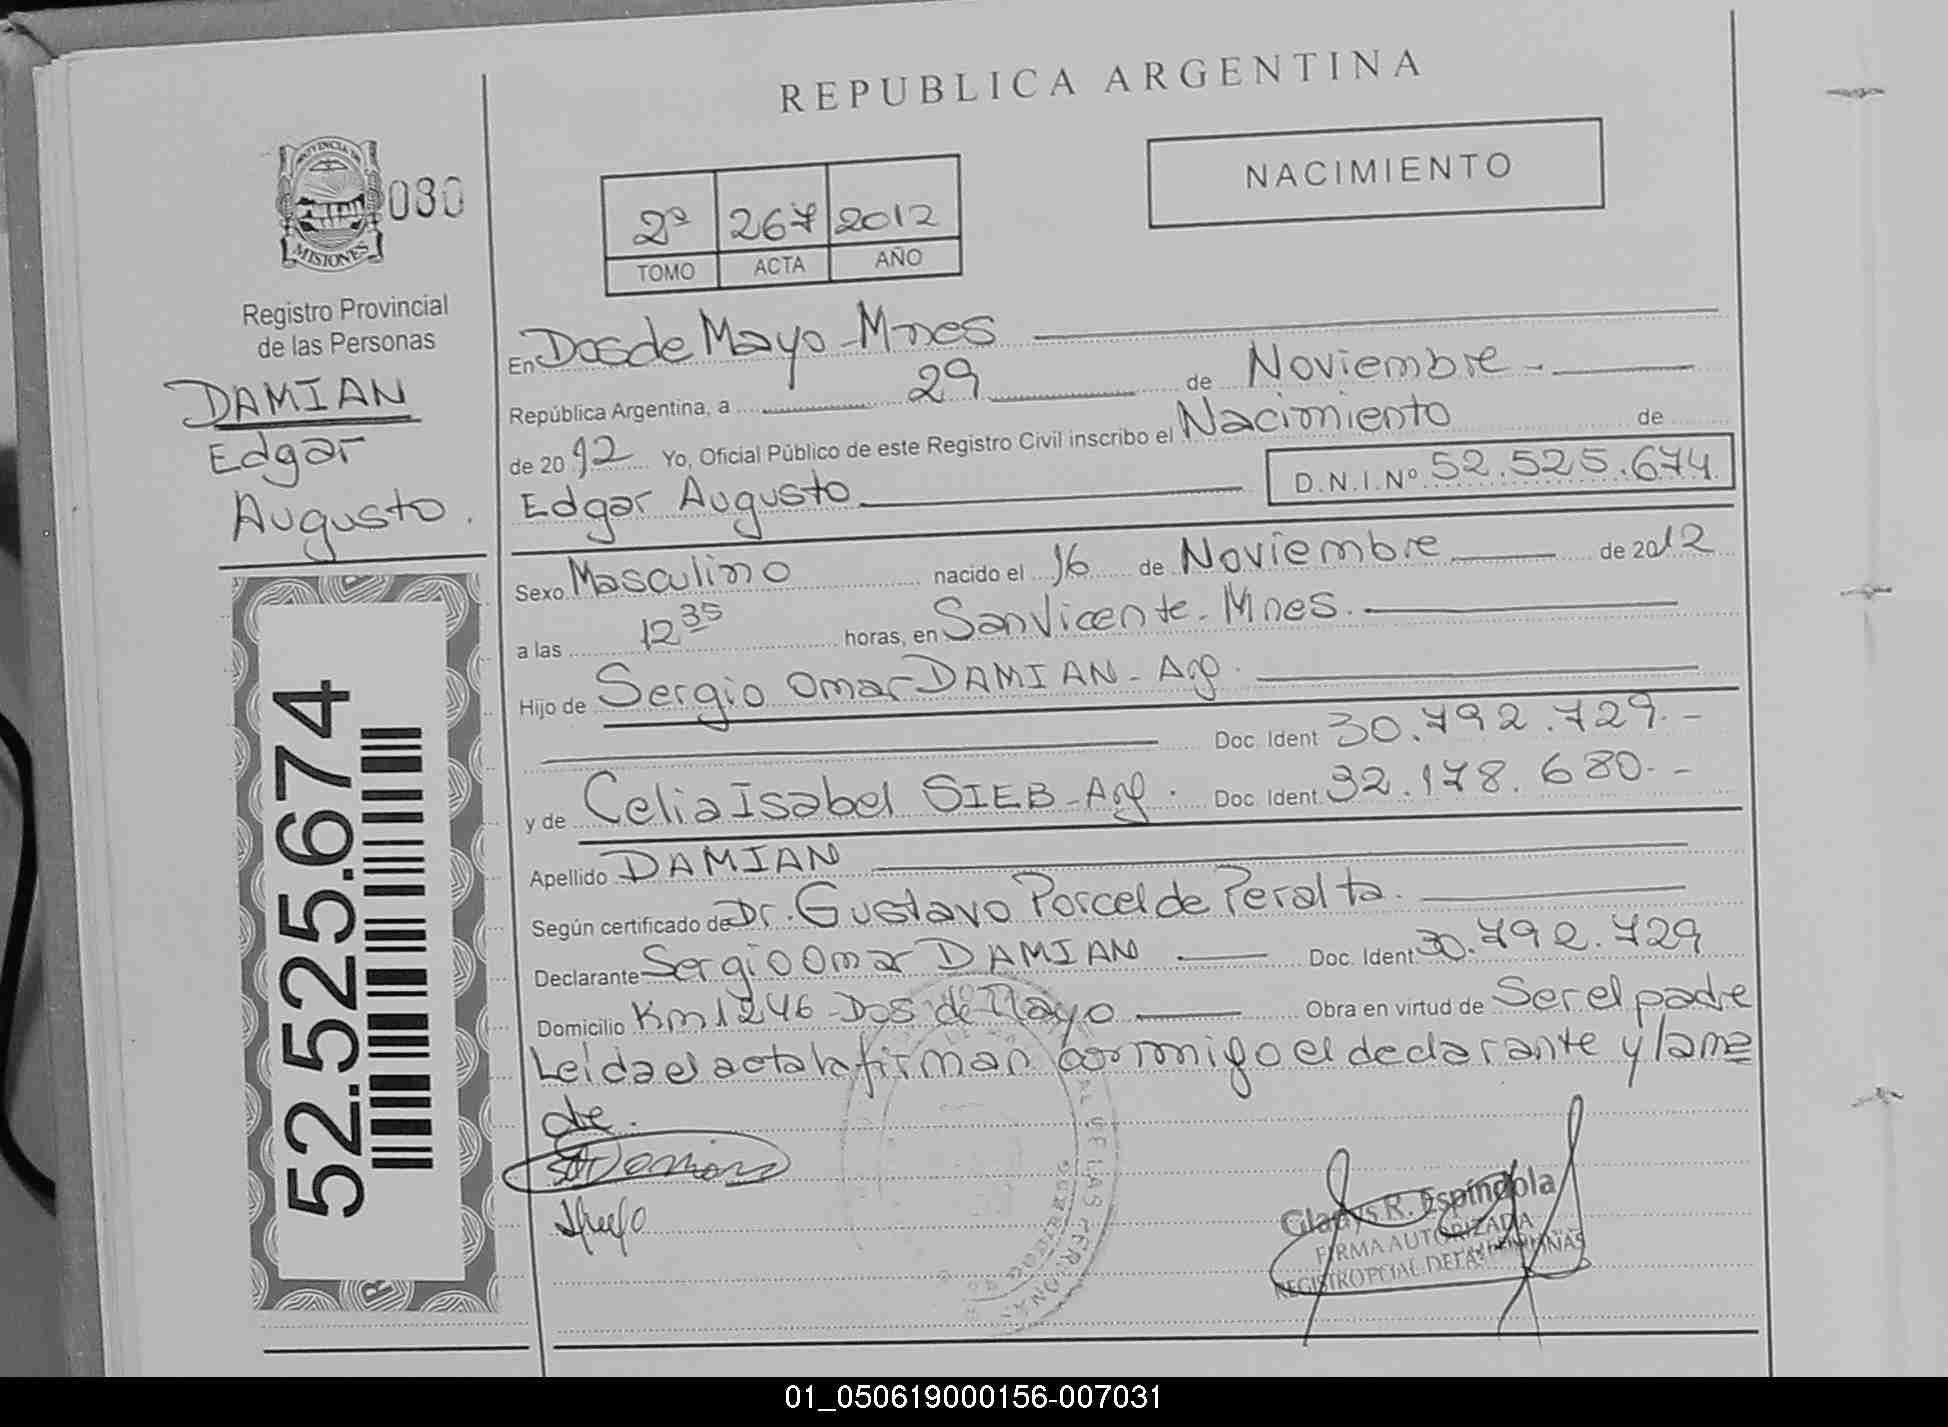 REPUBLICA ARGENTINA
PROVINCIA DE
MISIONES
030
Registro Provincial
de las Personas
DAMIAN
Edgar
Augusto.
52.525.674
2º 267 2012
TOMO ACTA AÑO
NACIMIENTO
En Dos de Mayo - Mnes
República Argentina, a 29 de Noviembre -
de 2012 Yo, Oficial Público de este Registro Civil inscribo el Nacimiento de
Edgar Augusto D.N.I.Nº 52.525.674
Sexo Masculino nacido el 16 de Noviembre de 2012
a las 12 35 horas, en San Vicente - Mnes.
Hijo de Sergio Omar DAMIAN - Arg.
Doc. Ident 30.792.729.-
y de Celia Isabel SIEB - Arg. Doc. Ident. 32.178.680.-
Apellido DAMIAN
Según certificado de Dr. Gustavo Porcel de Peralta.
Declarante Sergio Omar DAMIAN Doc. Ident. 30.792.729
Domicilio Km 1246 - Dos de Mayo Obra en virtud de Ser el padre
Leída el acta la firman conmigo el declarante y la ma
dre.
Gladys R. Espíndola
FIRMA AUTORIZADA
REGISTRO PCIAL. DE LAS
01_050619000156-007031